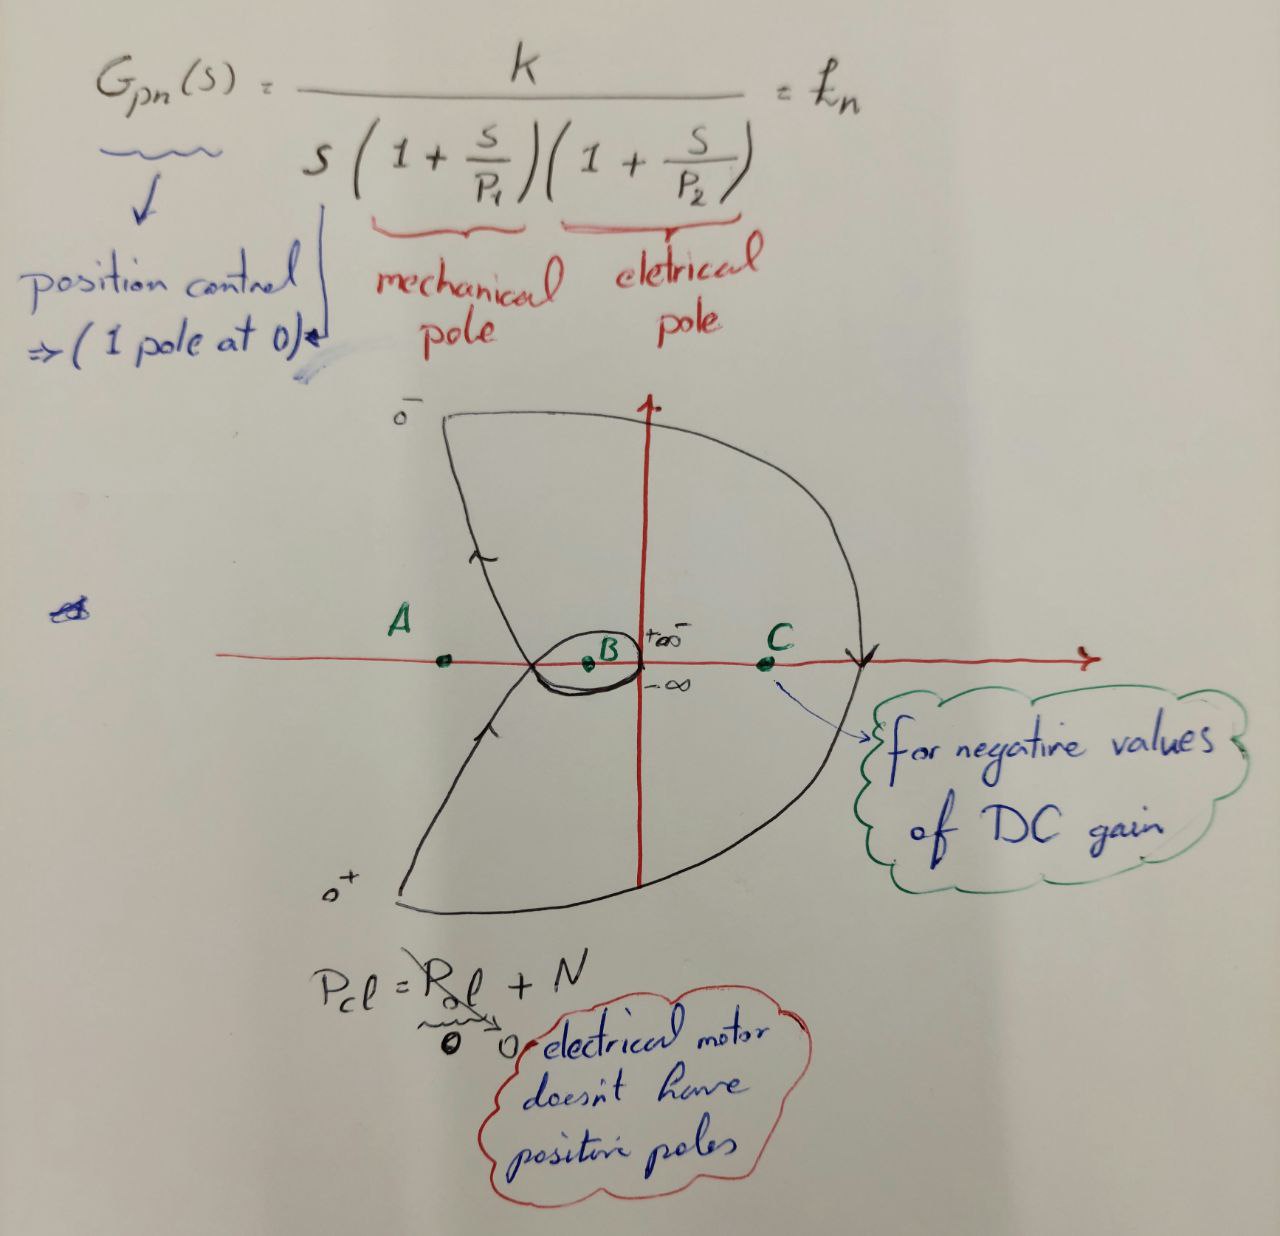 Gpn(s) = k / s(1 + s/P1)(1 + s/P2) = Ln
position control
⇒ (1 pole at 0)
mechanical
pole
eletrical
pole
0⁻
A
B
+∞
C
-∞
for negative values
of DC gain
0⁺
Pcl = Pol + N
0
0
electrical motor
doesn't have
positive poles